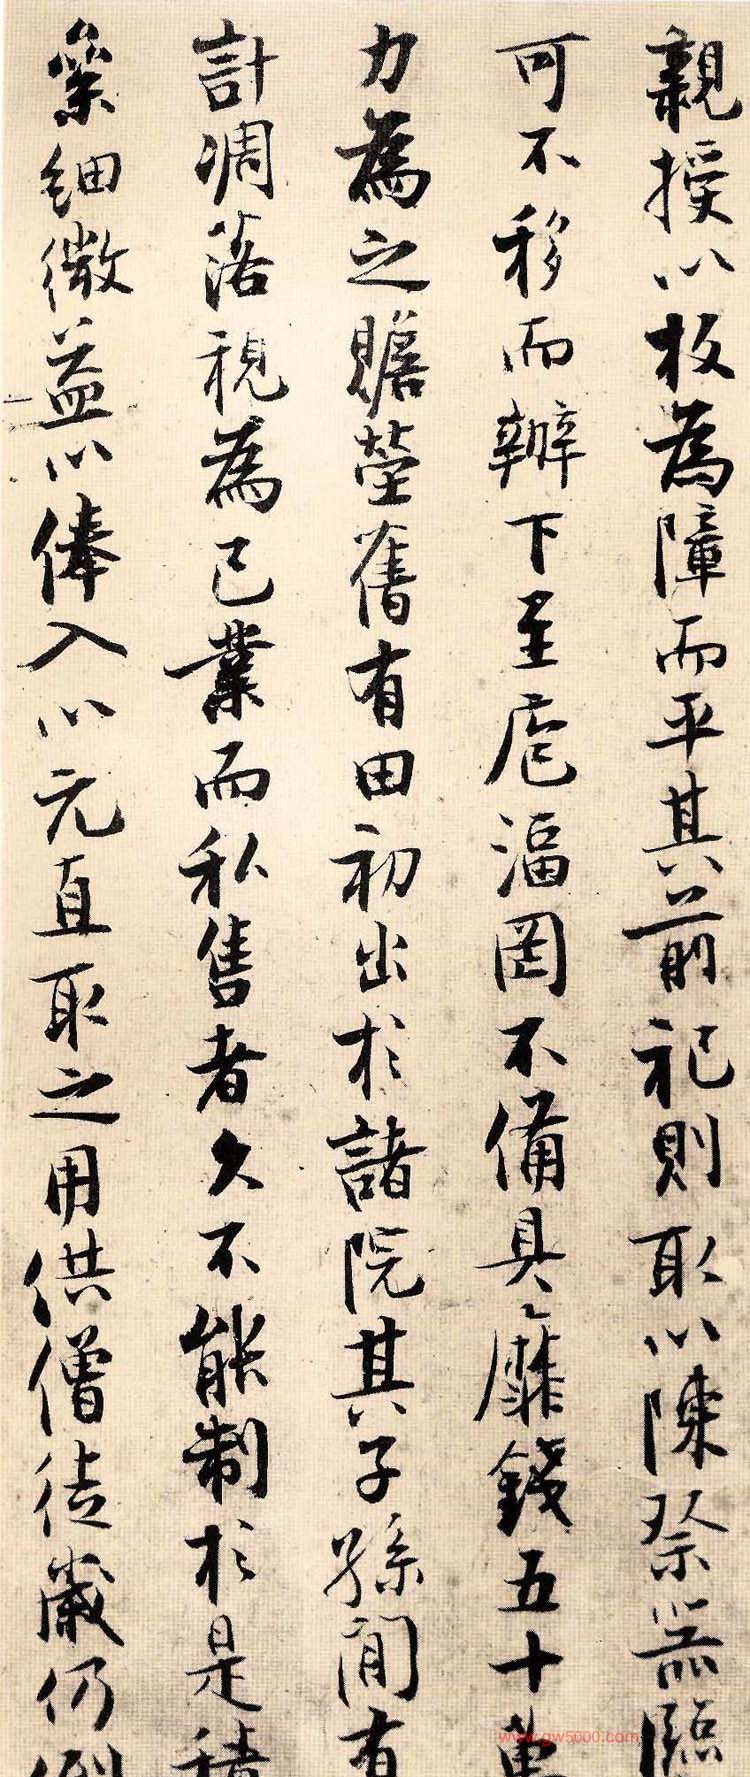 親授以板為障而平其前祀則取以陳祭器臨
可不移而辦下至庖湢罔不備具靡錢五十萬
力為之贍塋舊有田初出於諸院其子孫間有
計凋落視為己業而私售者久不能制於是積
絫細微益以俸入以元直取之用供僧徒歲仍倒
www.gw5000.com